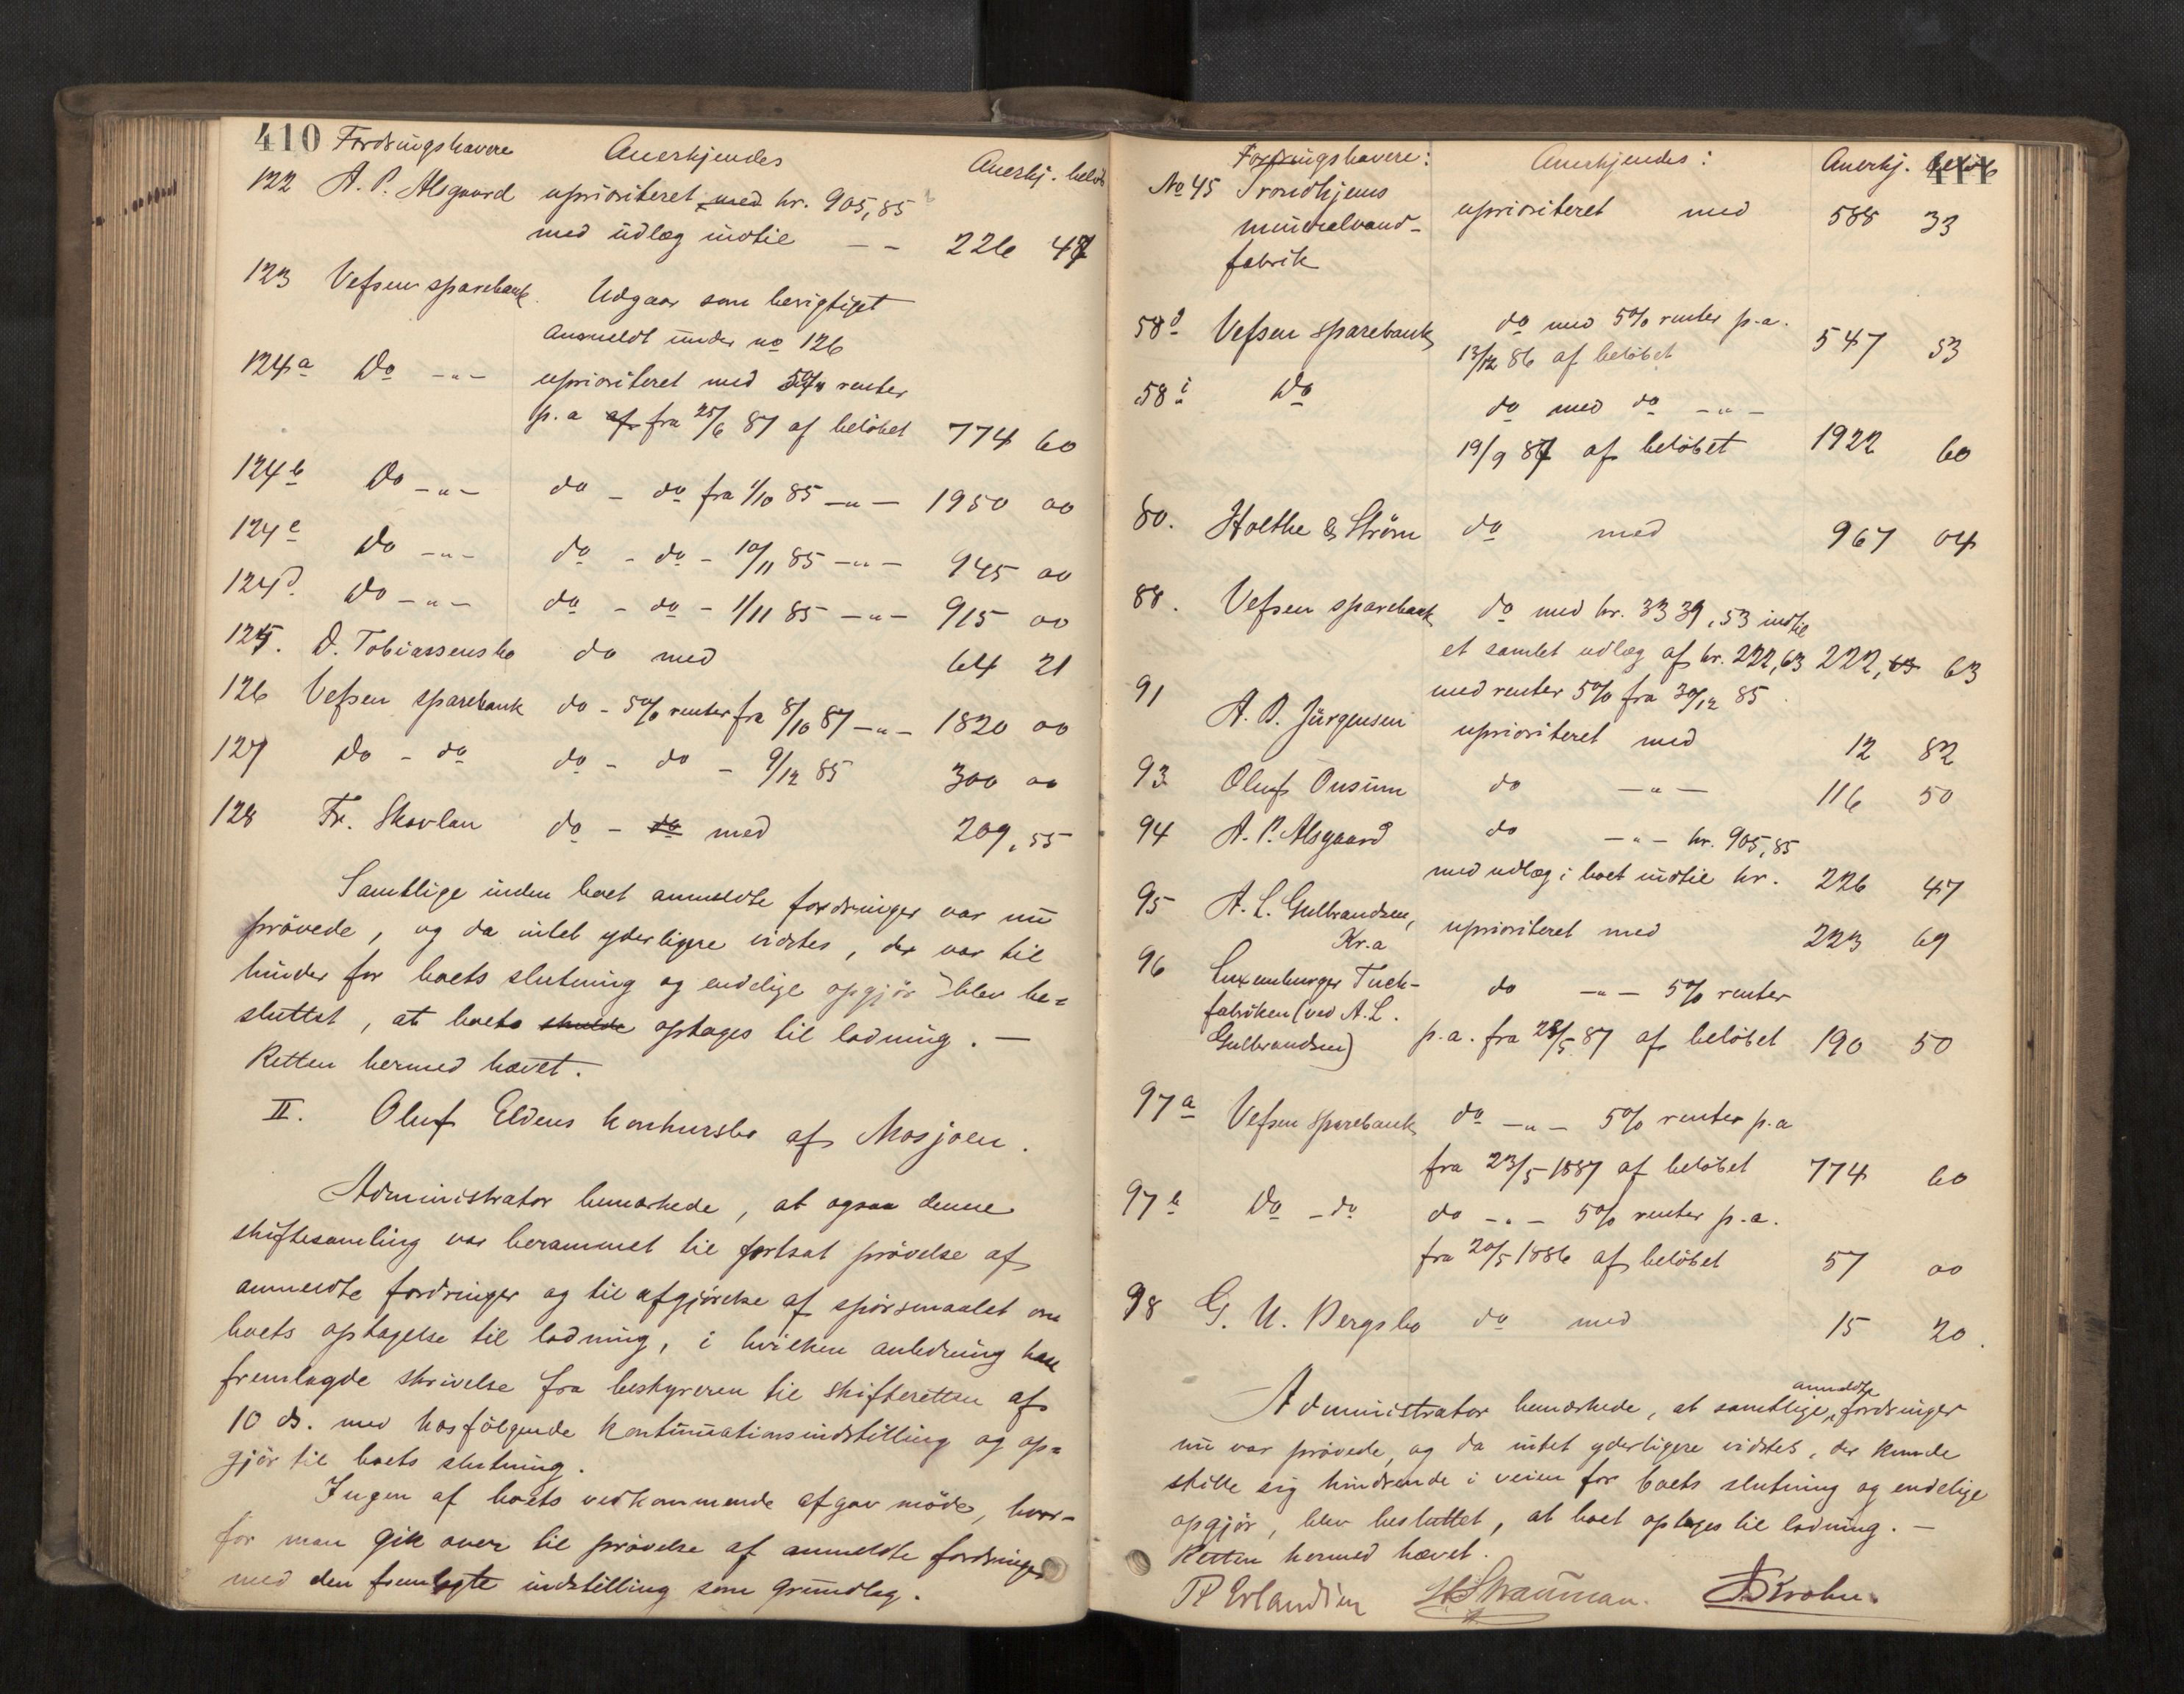 410 Fordringshavere Anerkjendes Anerkj. beløb
122 A. P. Alsgaard uprioriteret med kr. 905,85
med udlæg indtil — — 226 47
123 Vefsen sparebank. Udgaar som berigtiget
anmeldt under no 126
124a Do -"- uprioriteret med 5% renter
p.a af fra 25/6 87 af beløbet 774 60
124b Do -"- do - do fra 1/10 85 -"- 1950 00
124c Do -"- do - do - 10/11 85 -"- 945 00
124d Do -"- do - do - 1/11 85 -"- 915 00
125. D. Tobiassens bo do med 64 21
126 Vefsen sparebank do - 5% renter fra 8/10 87 -"- 1820 00
127 Do - do do - do - 9/12 85 300 00
128 Fr. Skavlan do - do med 209,55
Samtlige inden boet anmeldte fordringer var nu
prøvede, og da intet yderligere vidstes, der var til
hinder for boets slutning og endelige opgjør blev be=
sluttet, at boets skulde optages til lodning. —
Retten hermed hævet.
II. Oluf Eldens konkursbo af Mosjøen.
Administrator bemærkede, at ogsaa denne
skiftesamling var berammet til fortsat prøvelse af
anmeldte fordringer og til afgjørelse af spørsmaalet om
boets optagelse til lodning, i hvilken anledning han
fremlagde skrivelse fra bestyreren til skifteretten af
10 ds. med hosfølgende kontinuationsindstilling og op=
gjør til boets slutning.
Ingen af boets vedkommende afgav møde, hvor-
for man gik over til prøvelse af anmeldte fordringer
med den fremlagte indstilling som grundlag.
411
Fordringshavere: Anerkjendes: Anerkj. beløb
No 45 Trondhjems uprioriteret med 588 33
mineralvand-
fabrik
58d Vefsen sparebank do med 5% renter p.a.
13/12 86 af beløbet 547 53
58i Do do med do -"-
19/9 87 af beløbet 1922 60
80. Holthe & Strøm do med 967 04
88. Vefsen sparebank do med kr. 3339,53 indtil
et samlet udlæg af kr. 222,63 222,63 63
med renter 5% fra 30/12 85.
91 A. B. Jürgensen uprioriteret med 12 82
93 Oluf Onsum do -"- 116 50
94 A. P. Alsgaard do -"- kr. 905,85
med udlæg i boet indtil kr. 226 47
95 A. L. Gulbrandsen, uprioriteret med 223 69
Kr.a
96 Luxemburger Tuch- do -"- 5% renter
fabriken (ved A. L.
Gulbrandsen) p.a. fra 28/5 87 af beløbet 190 50
97a Vefsen sparebank do -"- 5% renter p.a
fra 23/5 1887 af beløbet 774 60
97b Do - do do -"- 5% renter p.a.
fra 20/5 1886 af beløbet 57 00
98 G. U. Bergsbo do med 15 20.
Administrator bemærkede, at samtlige anmeldte fordringer
nu var prøvede, og da intet yderligere vidstes, der kunde
stille sig hindrende i veien for boets slutning og endelige
opgjør, blev besluttet, at boet optages til lodning. —
Retten hermed hævet.
P Erlandsen Straumann. Krohn.